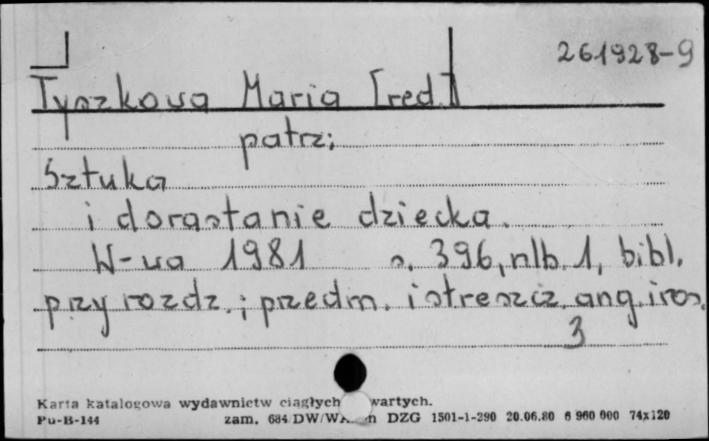 261928-9
Tyszkowa Maria [red.]
patrz:
Sztuka
i dorastanie dziecka.
W-wa 1981 s. 396, nlb. 1, bibl.
przy rozdz.; przedm. i streszcz. ang. i ros.
3
Karta katalogowa wydawnictw ciągłych wartych.
Pu-B-144 zam. 684/DW/W DZG 1501-1-290 20.06.80 6 960 000 74x120